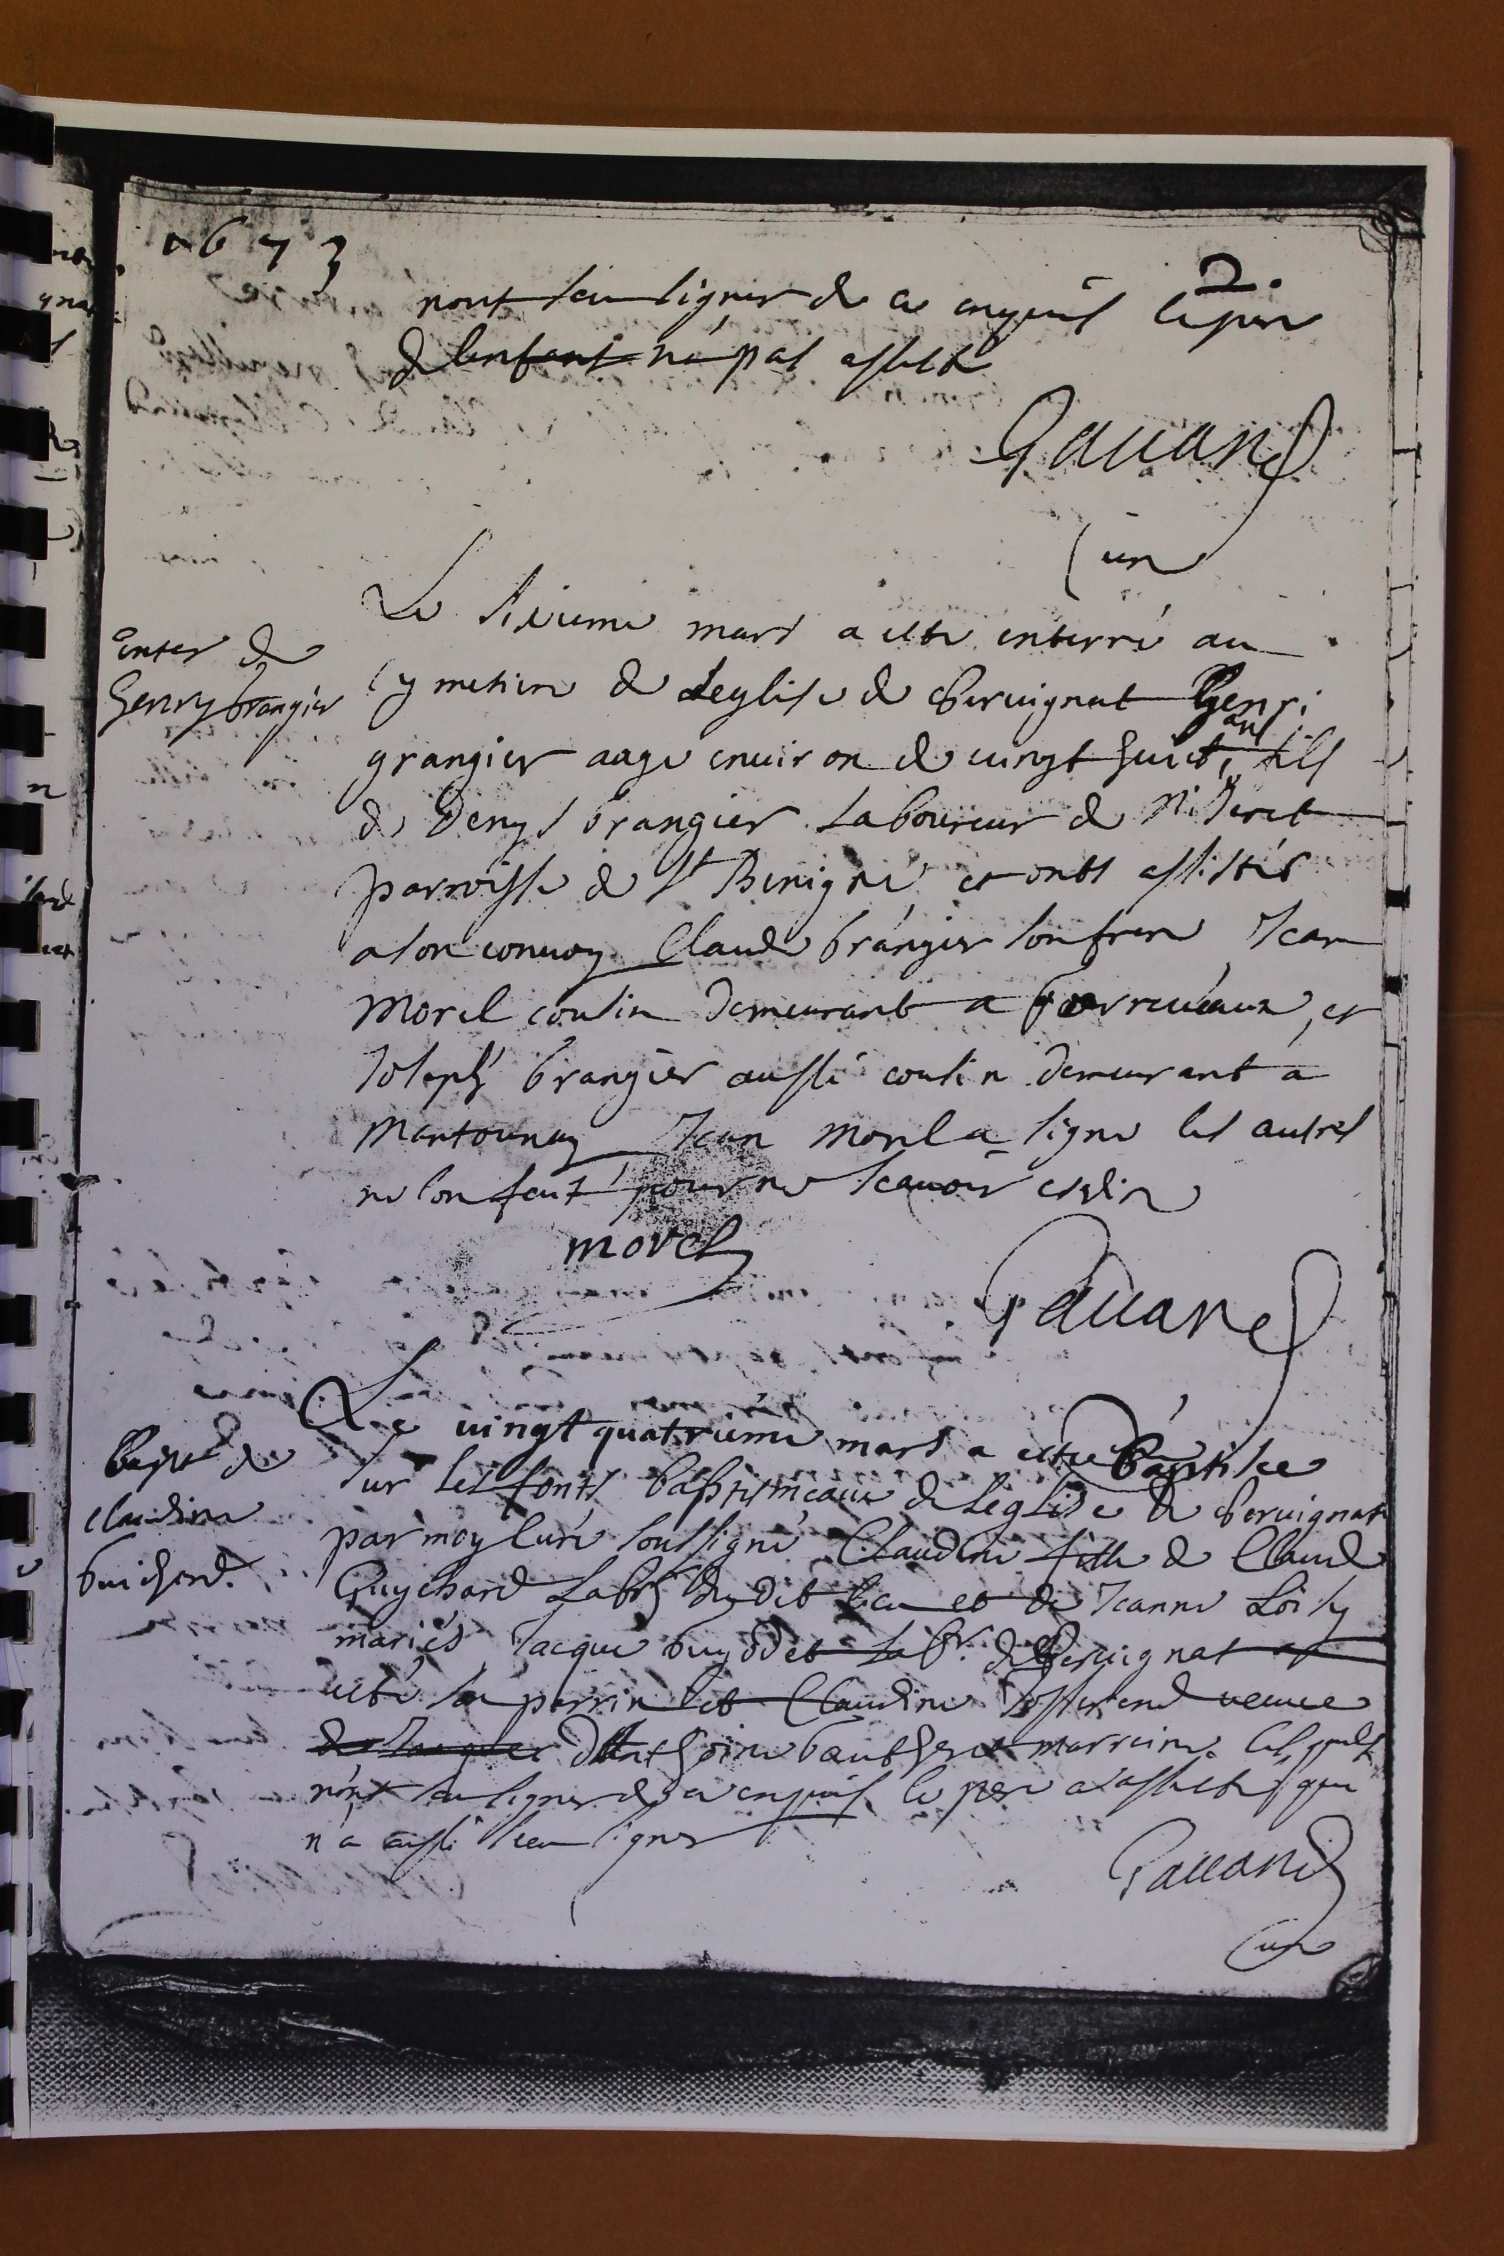 1673
2.
nont sceu signer de ce enquis le pere
de lenfant na pas assisté
Gauand
Curé
Enter de
Henry Grangier
Le sixieme mars a esté enterré au
cymetiere de leglise de Chevignat Henri
grangier aage environ de vingt huict ans fils
de Denys Grangier Laboureur de
parroisse de St Benigne, et onts assistés
a son convoy Claude Grangier son frere Jean
Morel cousin demeurant a et
Joseph Grangier aussi cousin demeurant a
Mantounay Jean Morel a signe les autres
ne lon faict pour ne scavoir
morel
Gauand
Bapt de
Claudine
Guichard.
Le vingt quatrieme mars a esté Baptisee
sur les fonts baptismeaux de leglise de Chevignat
par moy Curé soussigné Claudine fille de Claude
Guychard Labr dudit lieu et de Jeanne
mariés, Jacque Guyodet Labr. de Chevignat
esté son perrin et Claudine veuve
Danthoine Gautheret marreine. lesquels
nont sceu signer de ce enquis, le pere a assisté qui
n'a aussi sceu signer
Gauand
Curé